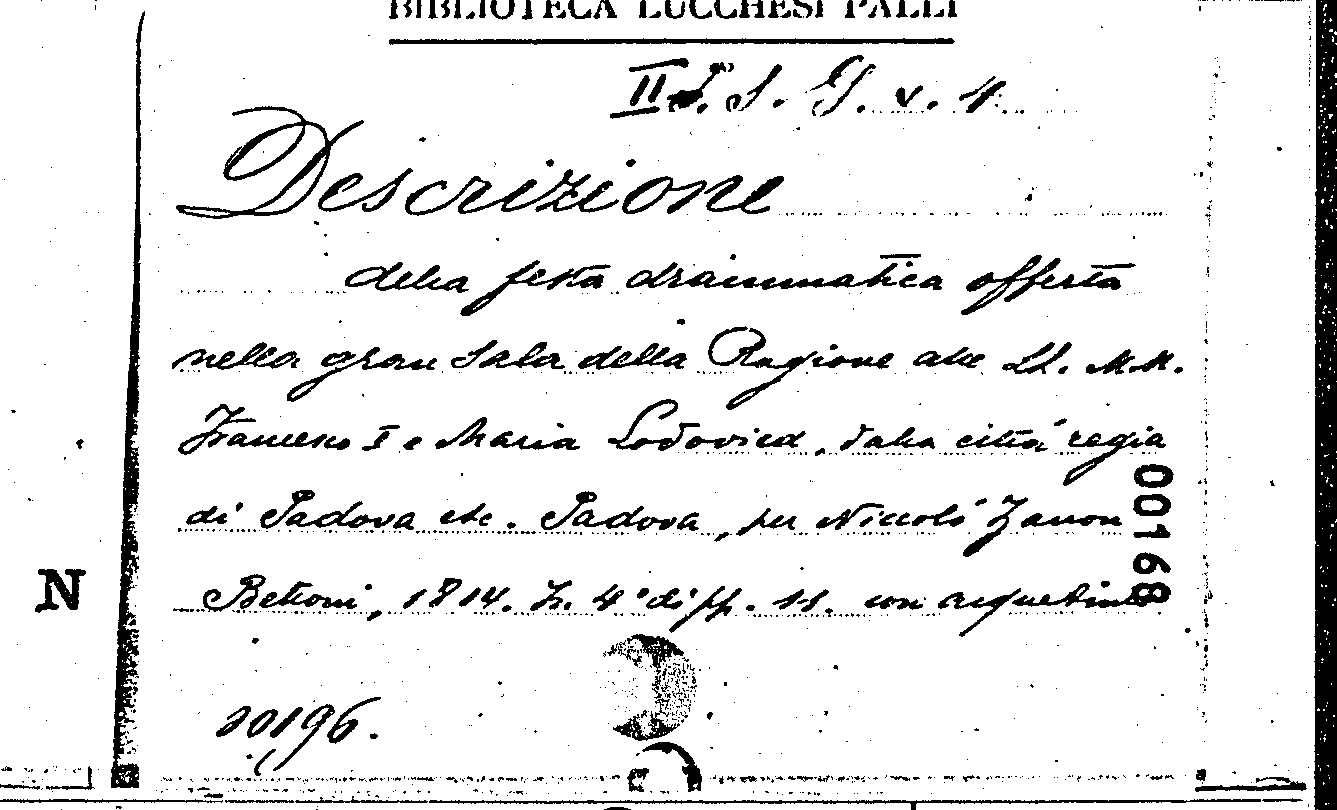 BIBLIOTECA LUCCHESI PALLI
II S. G. v. 4
Descrizione
della festa drammatica offerta
nella gran Sala della Ragione alle LL. MM.
Francesco I e Maria Lodovica, dalla città regia
di Padova etc. Padova, per Niccolò Zanon
Bettoni, 1814. In 4° di pp. 11. con acquetinte
00168
N
20196.